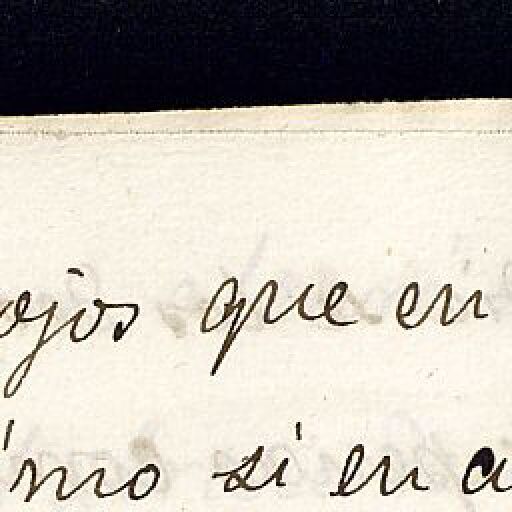 ojos que en
ímo si en a